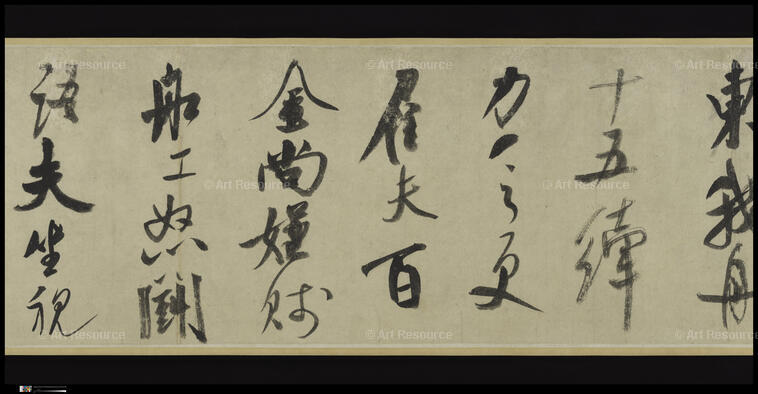 東我舟
十五縴
力乏更
雇夫百
金尚嫌賤
船工怒鬬
語夫坐視
© Art Resource
© Art Resource
© Art Resource
© Art Resource
© Art Resource
© Art Resource
© Art Resource
© Art Resource